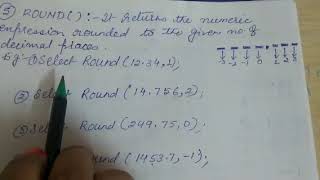 ⑤ ROUND() :- It returns the numeric
expression rounded to the given no. of
decimal places.
Eg:- ① Select Round(12.34,1);
② Select Round(14.756,2);
③ Select Round(249.75,0);
Round(1453.7,-1);